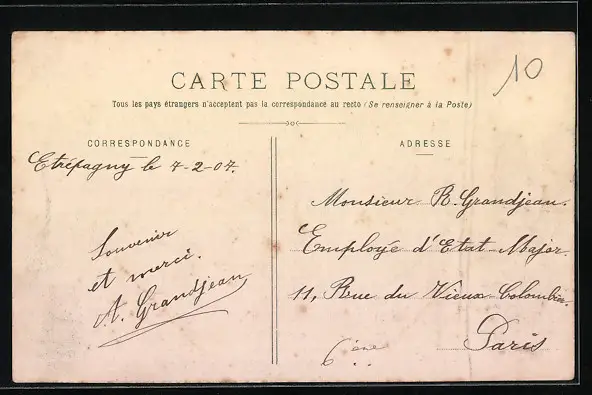 10
CARTE POSTALE
Tous les pays étrangers n'acceptent pas la correspondance au recto (Se renseigner à la Poste)
CORRESPONDANCE
Etrépagny le 7-2-07.
Souvenir
et merci.
A. Grandjean
ADRESSE
Monsieur R. Grandjean.
Employé d'Etat-Major.
11, Rue du Vieux Colombier.
Paris
6ème